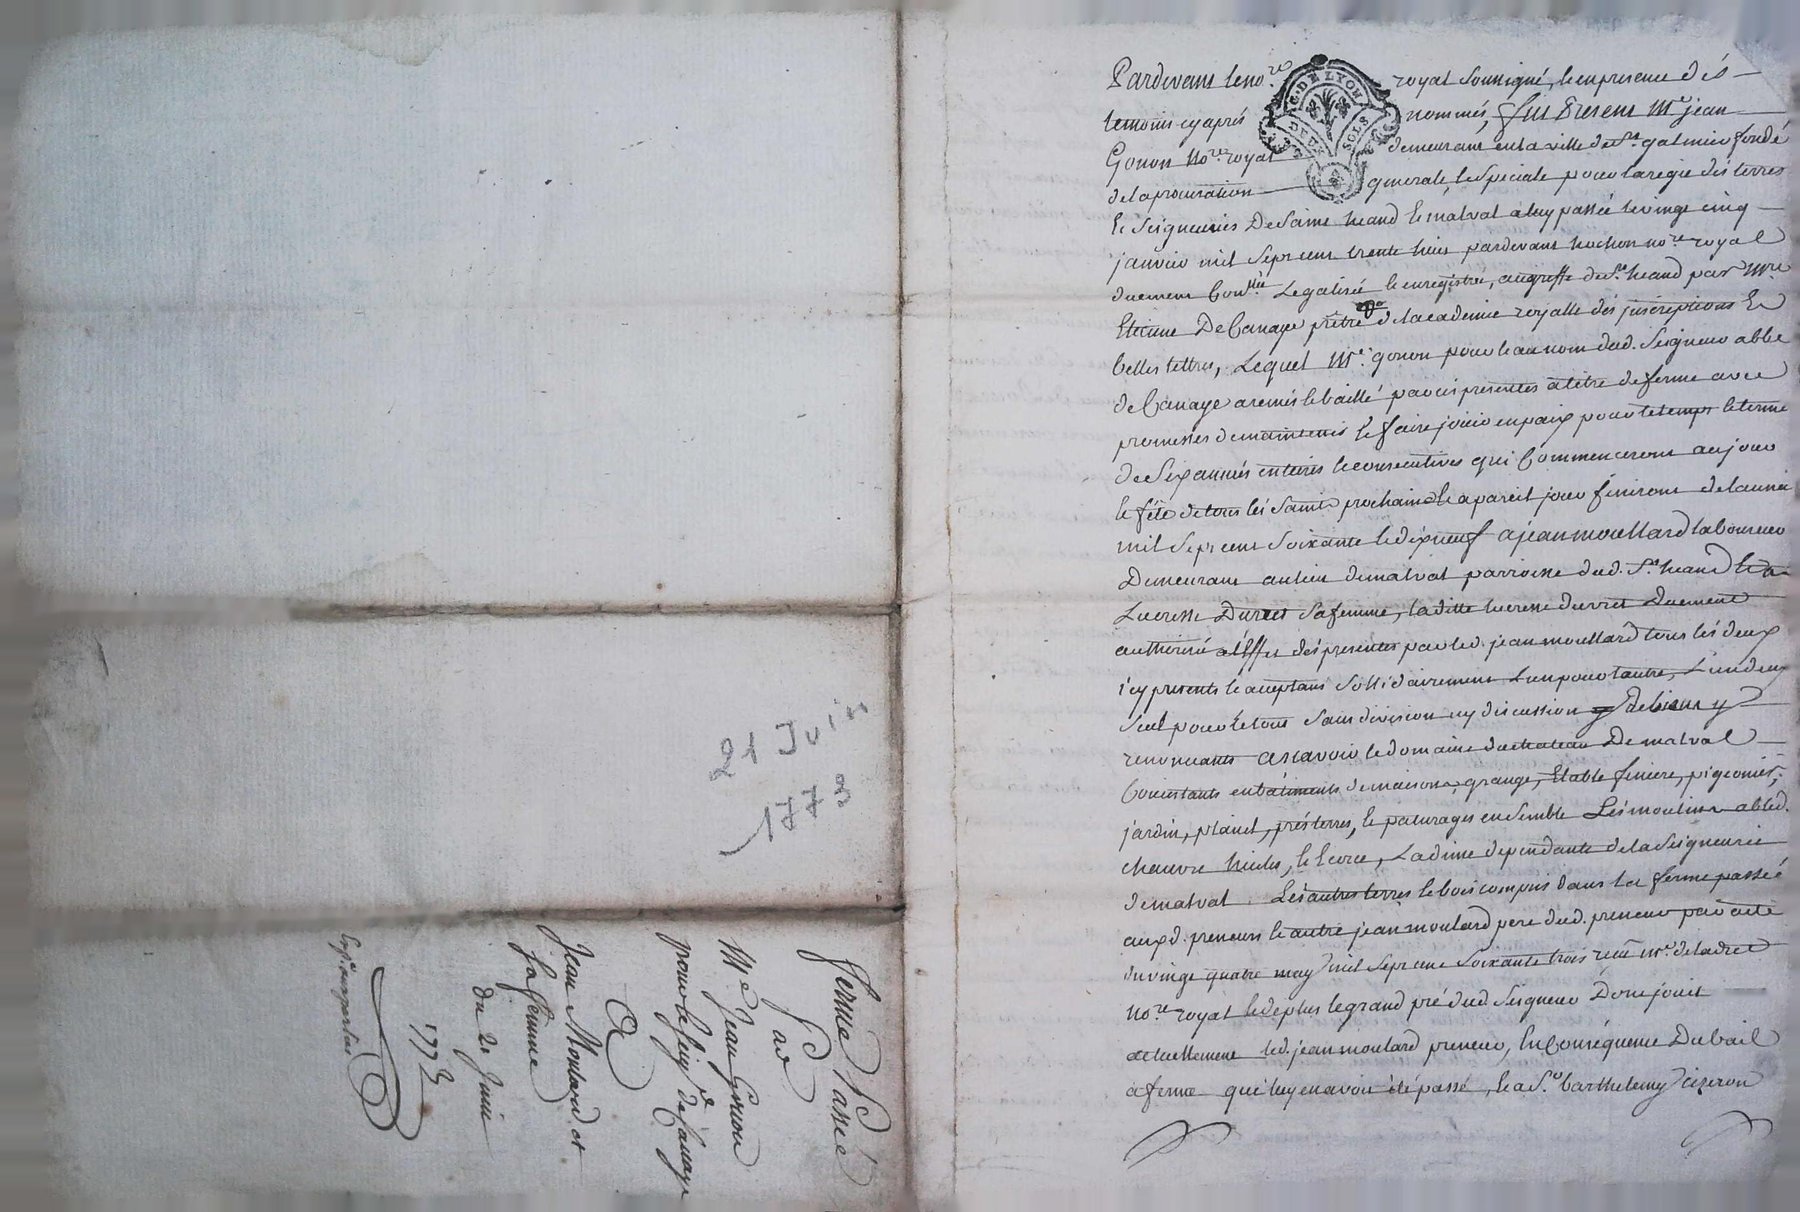 21 Juin
1773
ferme Passé
par
Me Jean Gonon
pour le seigr de Canaye
A
Jean Moulard et
sa femme
du 21 Juin
1773
G. DE LYON
DEUX SOLS
Pardevant le nore royal soussigné, et en presence des
temoins cy aprés nommés, fut present Me jean
Gonon nore royal demeurant en la ville de St galmier fondé
de la procuration generale, et speciale pour la regie des terres
et seigneuries De saint heand et malval a luy passée le vingt cinq
janvier mil sept cent trente huit pardevant hochon nore royal
duement Conllée Legalisée et enregistrée, au greffe de St heand par Mre
Etienne De Canaye prêtre de lacademie royalle des inscriptions Et
belles lettres, Lequel Me gonon pour et au nom dud. Seigneur abbé
de Canaye a remis et baillé par ces presentes a titre de ferme avec
promesses de maintenir et faire jouir en paix pour le temps et terme
de six années entieres et consecutives qui Commenceront au jour
et fête de tous les Saints prochaine et a pareil jour finiront de lannée
mil sept cent soixante et dix neuf a jean moullard laboureur
Demeurant au lieu de malval parroisse dud. St heand et a
Lucresse Durret sa femme, laditte lucresse durret duement
authorisée a leffet des presentes par led. jean moullard tous les deux
icy presents et acceptans sollidairement Lun pour lautre, Lun deux
seul pour le tout sans division ny discussion de biens y
renonceants assavoir le domaine du chateau De malval
Consistants en bâtiments de maisons, grange, Etable finiere, pigeonier,
jardin, plant, prés terres, et paturages ensemble Les moulins a bled.
chauvre huile, et Ecorce, La dime dependante de la seigneurie
de malval. Les autres terres et bois compris dans la ferme passée
auxd. preneurs et autre jean moulard pere dud. preneur par acte
du vingt quatre may mil sept cent soixante trois reçu Me deladret
nore royal et de plus le grand pré dud. Seigneur Dont jouit
actuellement led. jean moulard preneur, En Conséquence Du bail
a ferme qui luy en avoit été passé, et a Sr barthelemy cizeron